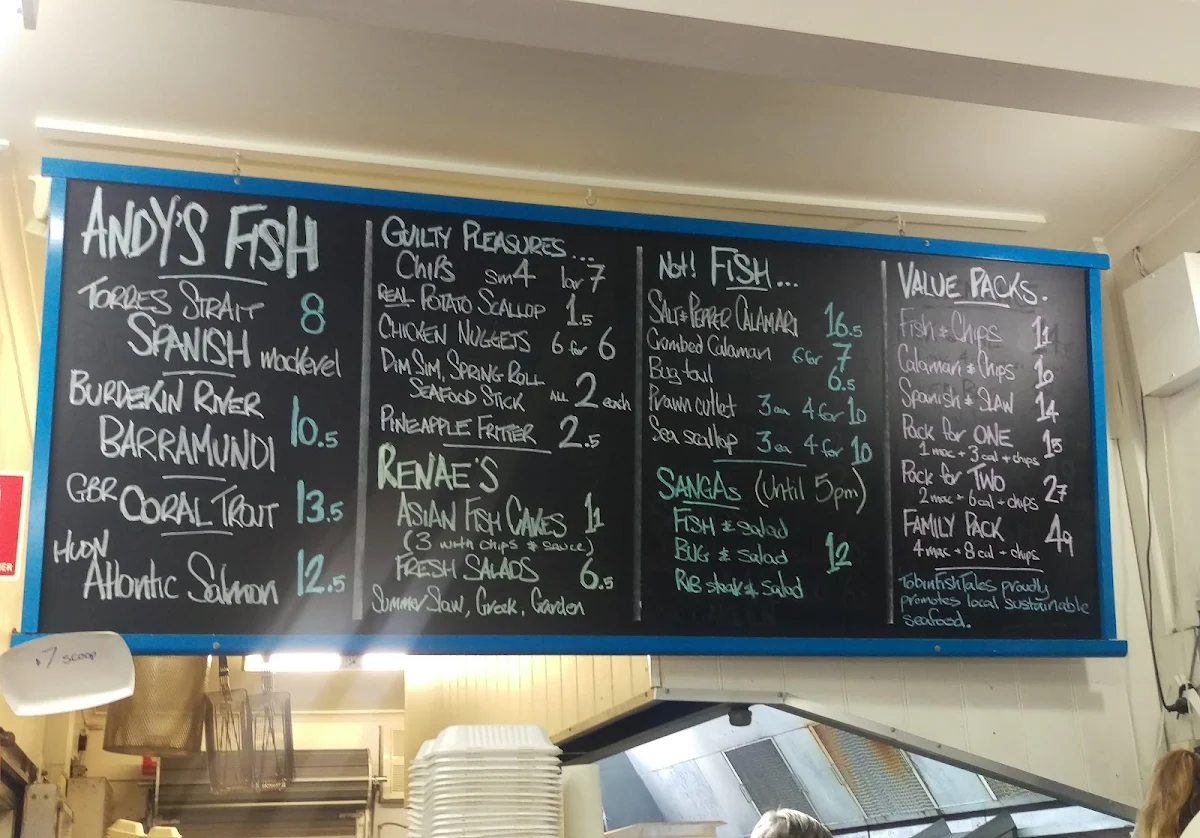 ANDY'S FISH
TORRES STRAIT 8
SPANISH mackevel
BURDEKIN RIVER
BARRAMUNDI 10.5
GBR CORAL TROUT 13.5
HUON
Atlantic Salmon 12.5
GUILTY PLEASURES...
CHIPS sm 4 lar 7
REAL POTATO SCALLOP 1.5
CHICKEN NUGGETS 6 for 6
DIM SIM, SPRING ROLL
SEAFOOD STICK ALL 2 each
PINEAPPLE FRITTER 2.5
RENAE'S
ASIAN FISH CAKES 11
(3 with chips & sauce)
FRESH SALADS 6.5
Summer Slaw, Greek, Garden
Not! FISH...
SALT & PEPPER CALAMARI 16.5
Crumbed Calamari 6 for 7
Bug tail 6.5
Prawn cutlet 3 ea 4 for 10
Sea scallop 3 ea 4 for 10
SANGAS (Until 5pm)
FISH & salad
BUG & salad 12
RIB steak & Salad
VALUE PACKS.
Fish & Chips 11
Calamari & Chips 10
Spanish & SLAW 14
Pack for ONE 15
1 mac + 3 cal + chips
Pack for TWO 27
2 mac + 6 cal + chips
FAMILY PACK 49
4 mac + 8 cal + chips
Tobinfishtales proudly
promotes local sustainable
seafood.
$7 scoop